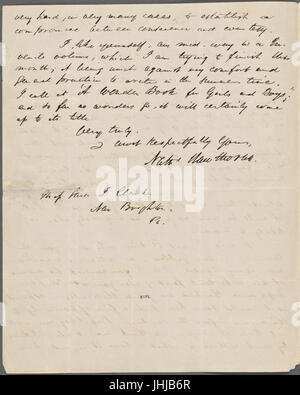 very hard, in very many cases, to establish a
compromise between conscience and courtesy.
I, like yourself, am mid-way in a Ju-
venile volume, which I am trying to finish this
month; it being much against my comfort and
general practice to write in the summer time.
I call it "A Wonder Book for Girls and Boys";
and so far as wonders go, it will certainly come
up to its title.
Very truly,
& most respectfully Yours,
Nathl Hawthorne.
Miss Sara J. Clarke,
New Brighton,
Pa.
alamy stock photo
a
JHJB6R
www.alamy.com